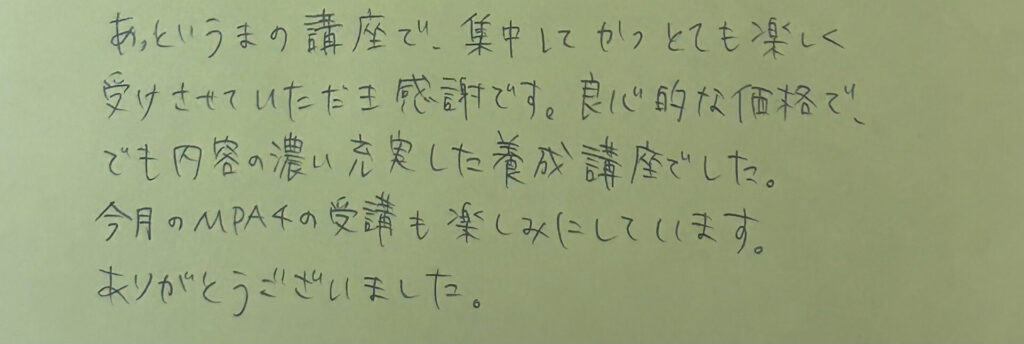 あっというまの講座で、集中してかつとても楽しく
受けさせていただき感謝です。良心的な価格で、
でも内容の濃い充実した養成講座でした。
今月のMPA4の受講も楽しみにしています。
ありがとうございました。